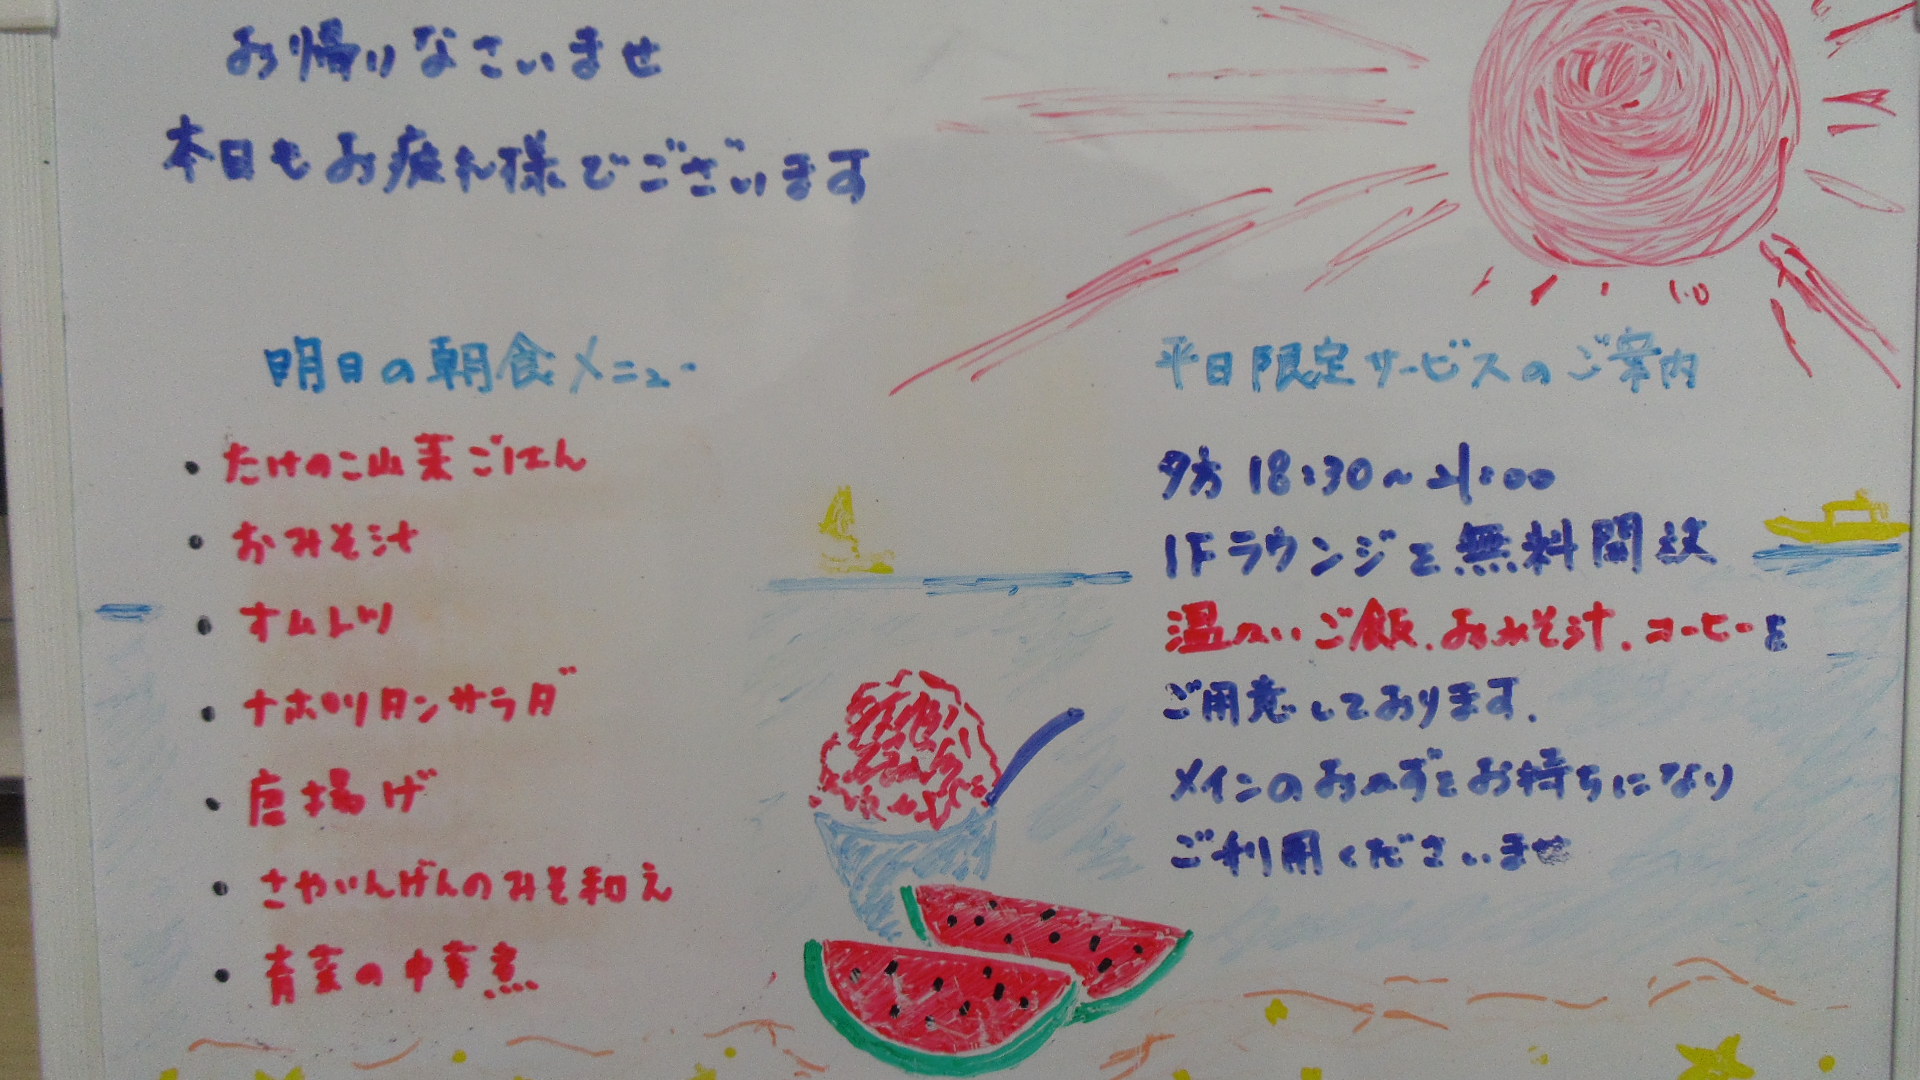 お帰りなさいませ
本日もお疲れ様でございます
明日の朝食メニュー
・たけのこ山菜ごはん
・おみそ汁
・オムレツ
・ナポリタンサラダ
・唐揚げ
・さやいんげんのみそ和え
・青菜の中華煮
平日限定サービスのご案内
夕方 18:30~21:00
1Fラウンジを無料開放
温かいご飯.おみそ汁.コーヒーを
ご用意しております.
メインのおかずをお持ちになり
ご利用くださいませ